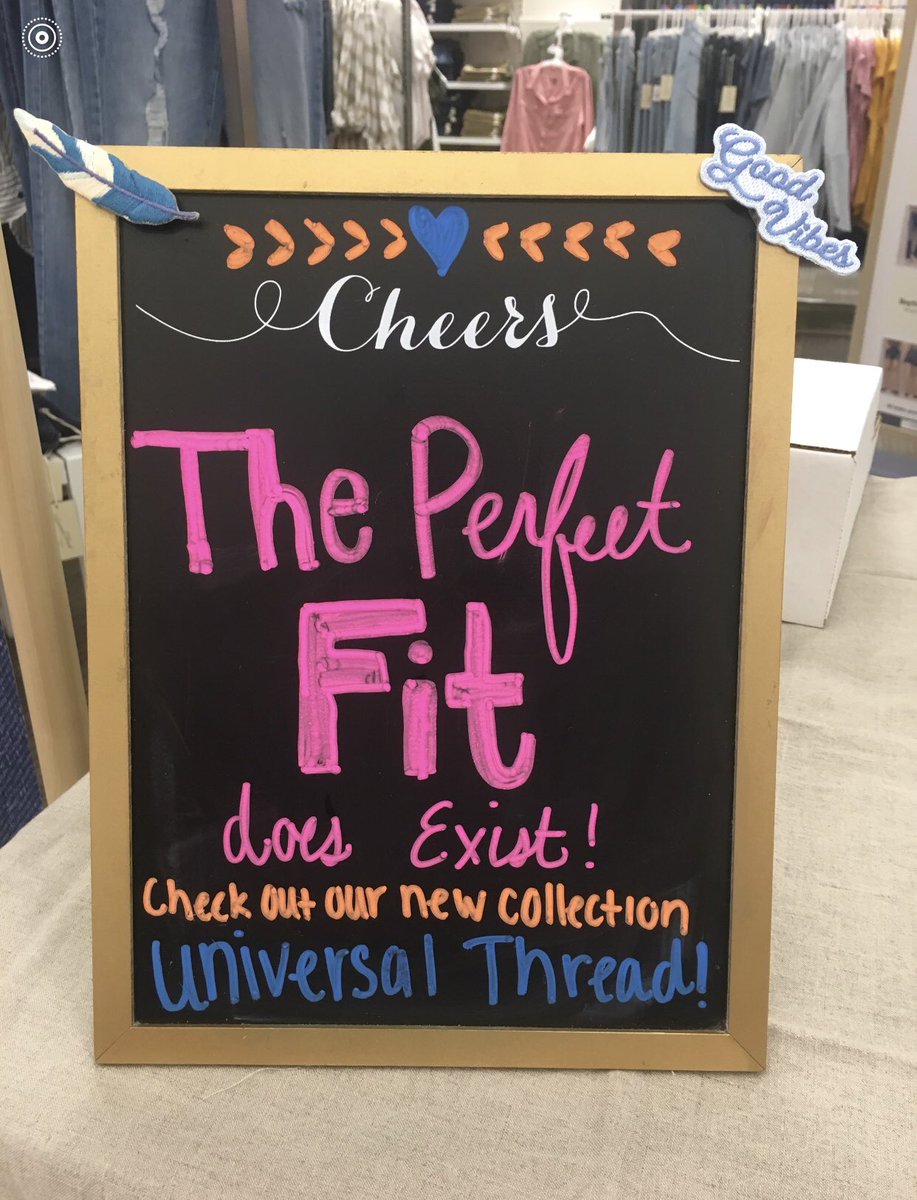 Good
Vibes
Cheers
The Perfect
Fit
does Exist!
Check out our new collection
Universal Thread!